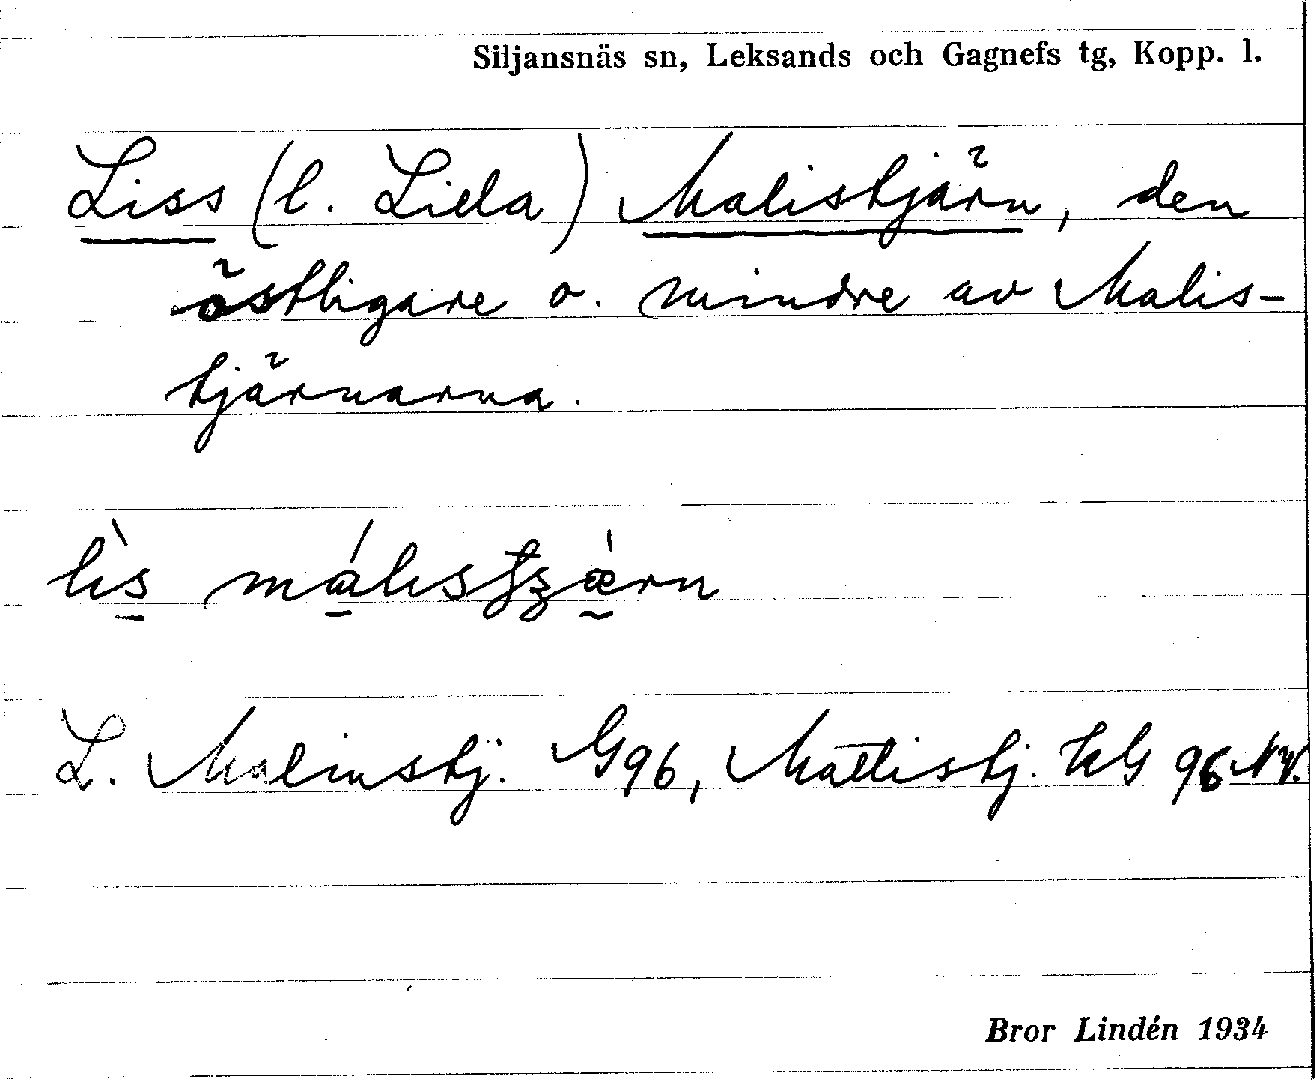 Siljansnäs sn, Leksands och Gagnefs tg, Kopp. l.
Liss (l. Lilla) Malistjärn, den
östligare o. mindre av Malis-
tjärnarna.
L. Malinstj. G96, Mattistj.
Bror Lindén 1934